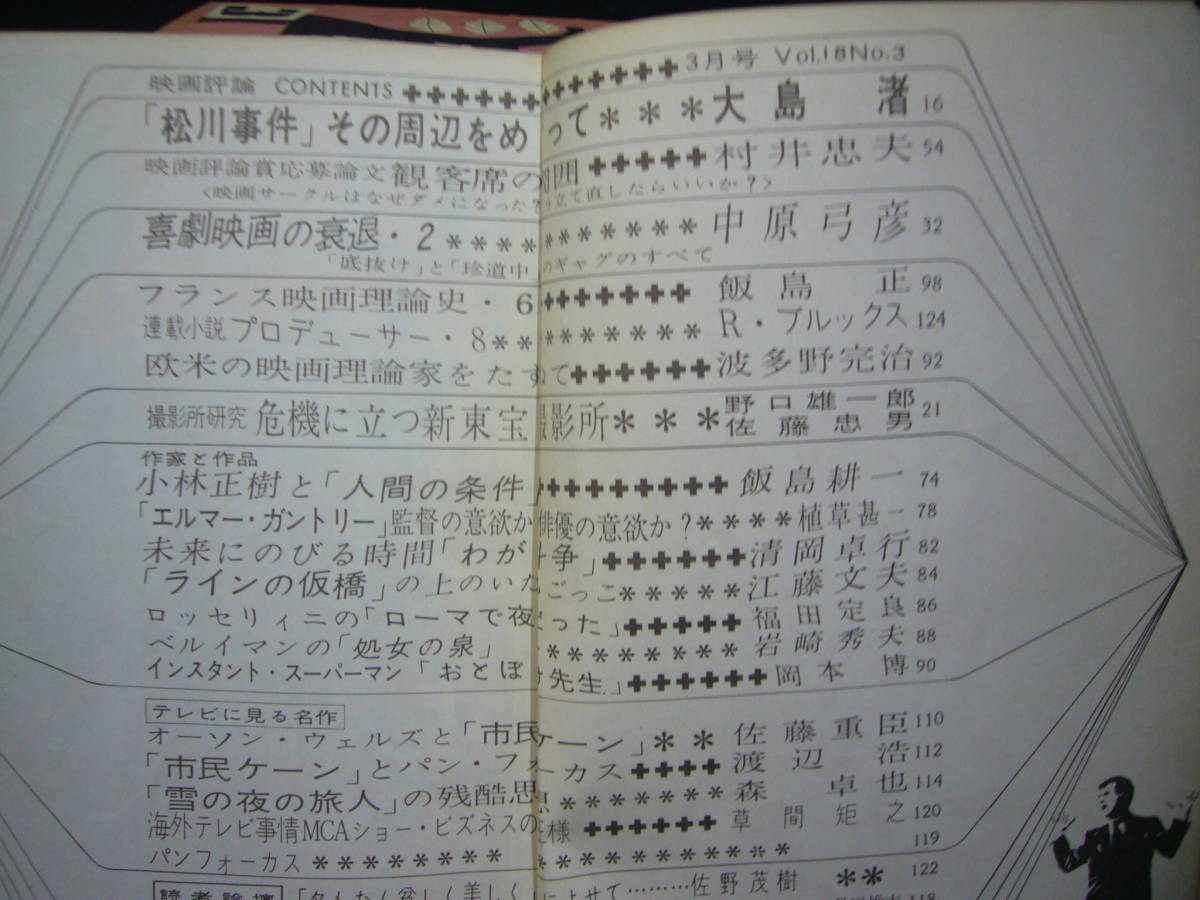 3
3月号 Vol.18No.3
映画評論 CONTENTS
「松川事件」その周辺をめ って***大島渚 16
映画評論賞応募論文 観客席の 囲 村井忠夫 54
<映画サークルはなぜダメになった? 立て直したらいいか?>
喜劇映画の衰退・2************中原弓彦 32
「底抜け」と「珍道中 のギャグのすべて
フランス映画理論史・6 飯島正 98
連載小説 プロデューサー・8 R・ブルックス 124
欧米の映画理論家をたずねて 波多野完治 92
撮影所研究 危機に立つ新東宝撮影所***野口雄一郎 佐藤忠男 21
作家と作品
小林正樹と「人間の条件」 飯島耕一 74
「エルマー・ガントリー」監督の意欲か俳優の意欲か?****植草甚一 78
未来にのびる時間「わが 争」 清岡卓行 82
「ラインの仮橋」の上のいた ごっこ 江藤文夫 84
ロッセリィニの「ローマで夜だった」 福田定良 86
ベルイマンの「処女の泉」 岩崎秀夫 88
インスタント・スーパーマン「おとぼけ先生」 岡本博 90
テレビに見る名作
オーソン・ウェルズと「市民ケーン」**佐藤重臣 110
「市民ケーン」とパン・フォーカス 渡辺浩 112
「雪の夜の旅人」の残酷思想 森卓也 114
海外テレビ事情MCAショー・ビズネスの 様 草間矩之 120
パンフォーカス 119
読者論壇 「名もなく貧しく美しく」によせて………佐野茂樹 ** 122
118